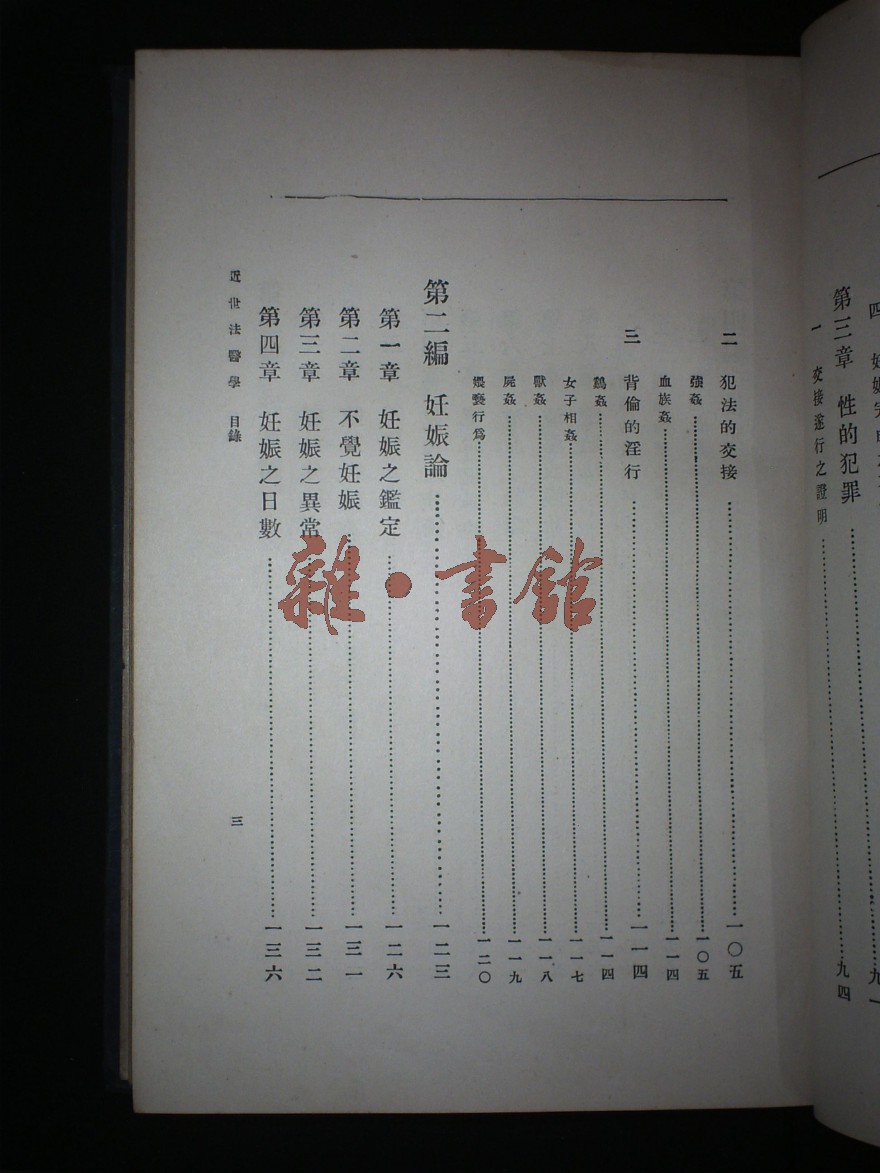 第三章 性的犯罪
一 交接遂行之證明……九四
二 犯法的交接……一〇五
強姦……一〇五
血族姦……一一四
三 背倫的淫行……一一四
鷄姦……一一四
女子相姦……一一七
獸姦……一一八
屍姦……一一九
猥褻行爲……一二〇
第二編 妊娠論……一二三
第一章 妊娠之鑑定……一二六
第二章 不覺妊娠……一三一
第三章 妊娠之異常……一三二
第四章 妊娠之日數……一三六
近世法醫學 目錄
三
雜·書館